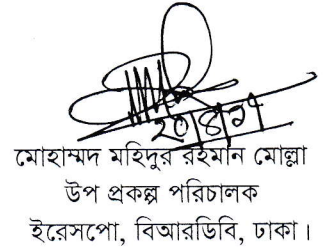 ২০/৪/২৭
মোহাম্মদ মহিদুর রহমান মোল্লা
উপ প্রকল্প পরিচালক
ইরেসপো, বিআরডিবি, ঢাকা।